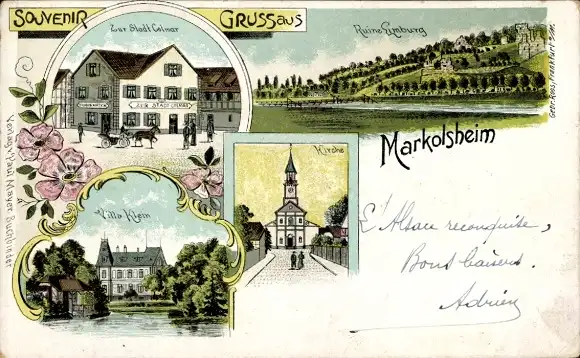 SOUVENIR GRUSS aus
Zur Stadt Colmar
ZUR STADT COLMAR
Ruine Limburg
Markolsheim
Kirche
Villa Klein
L'Alsace reconquise,
Bons baisers.
Adrien
Verlag v. Paul Mayer Buchbinder